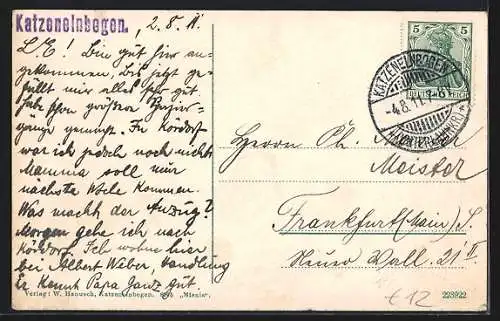 Katzenelnbogen.
2.8.11.
L. E.! Bin gut hier an-
gekommen, bis jetzt ge-
fällt mir alles sehr gut
habe schon größere Spazier-
gänge gemacht. In Kördorf
war ich jedoch noch nicht.
Mamma soll nur
nächste Woche kommen.
Was macht der Anzug?
Morgen gehe ich nach
Kördorf. Ich wohne hier
bei Albert Weber, Handlung
Er kennt Papa ganz gut.
Verlag: W. Hanusch, Katzenelnbogen.
5
5
DEUTSCHES REICH
KATZENELNBOGEN
-4.8.11.
Herrn Ph.
Meister
Frankfurt (Main) S
Neuer Wall. 21 II
223922
€12